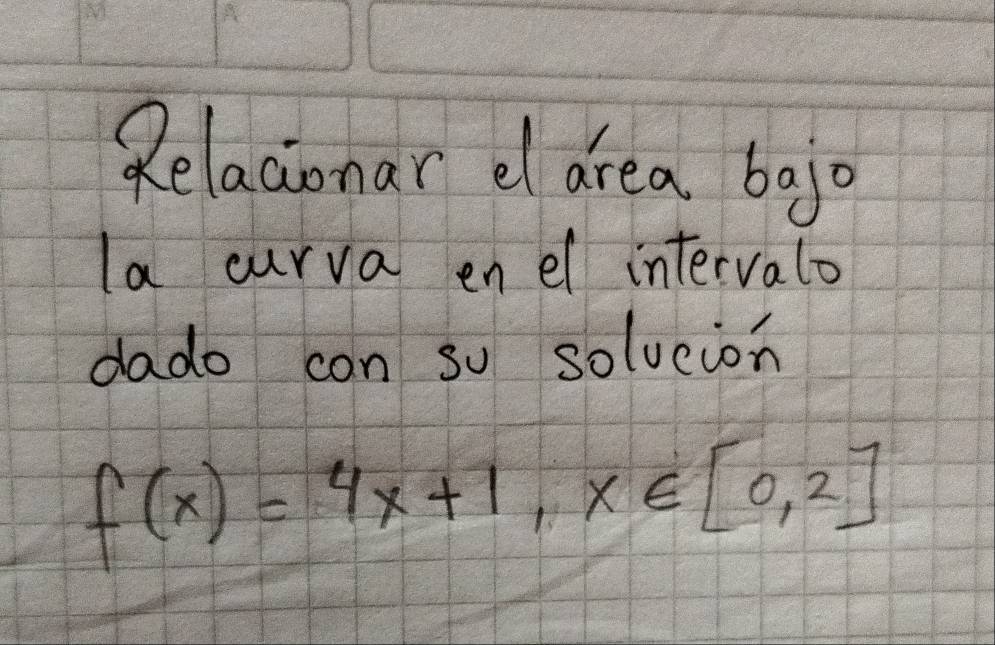 M A
Relacionar el área bajo
la curva en el intervalo
dado con su solución
f(x) = 4x+1, x ∈ [0,2]